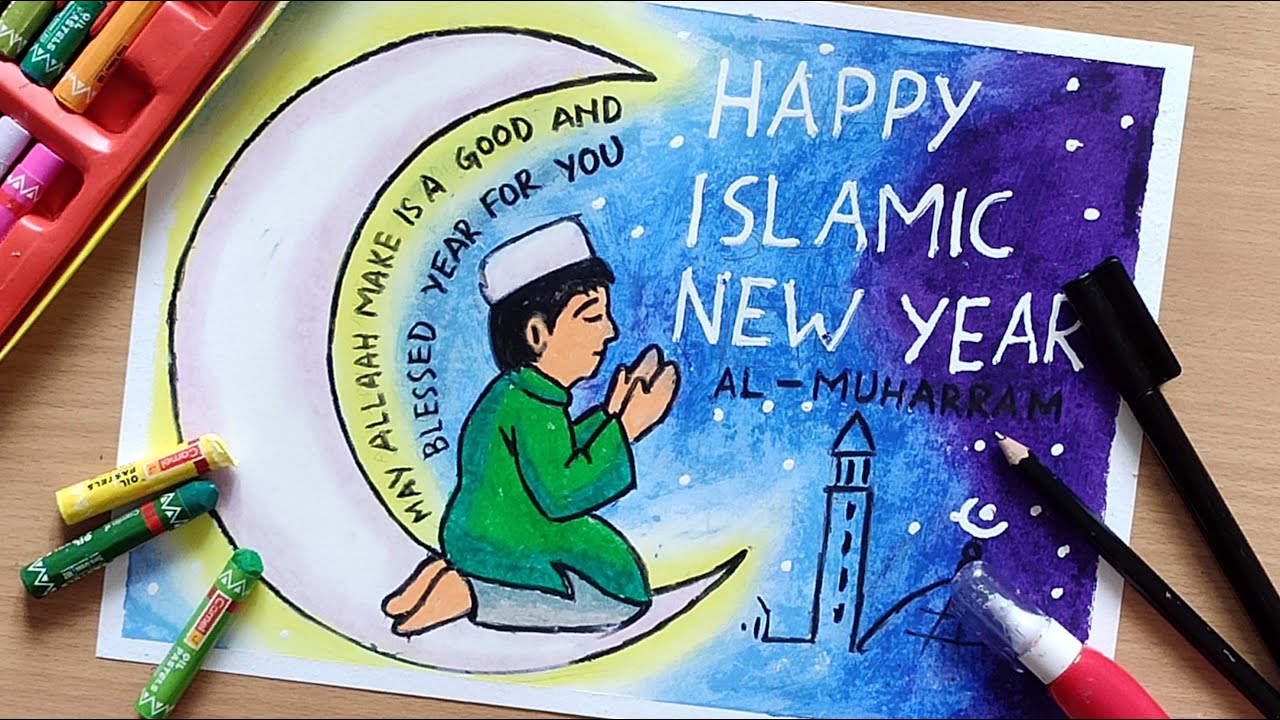 HAPPY
ISLAMIC
NEW YEAR
AL-MUHARRAM
MAY ALLAAH MAKE IS A GOOD AND
BLESSED YEAR FOR YOU
OIL PASTELS
Camel
OIL PASTELS
Camel
OIL PASTELS